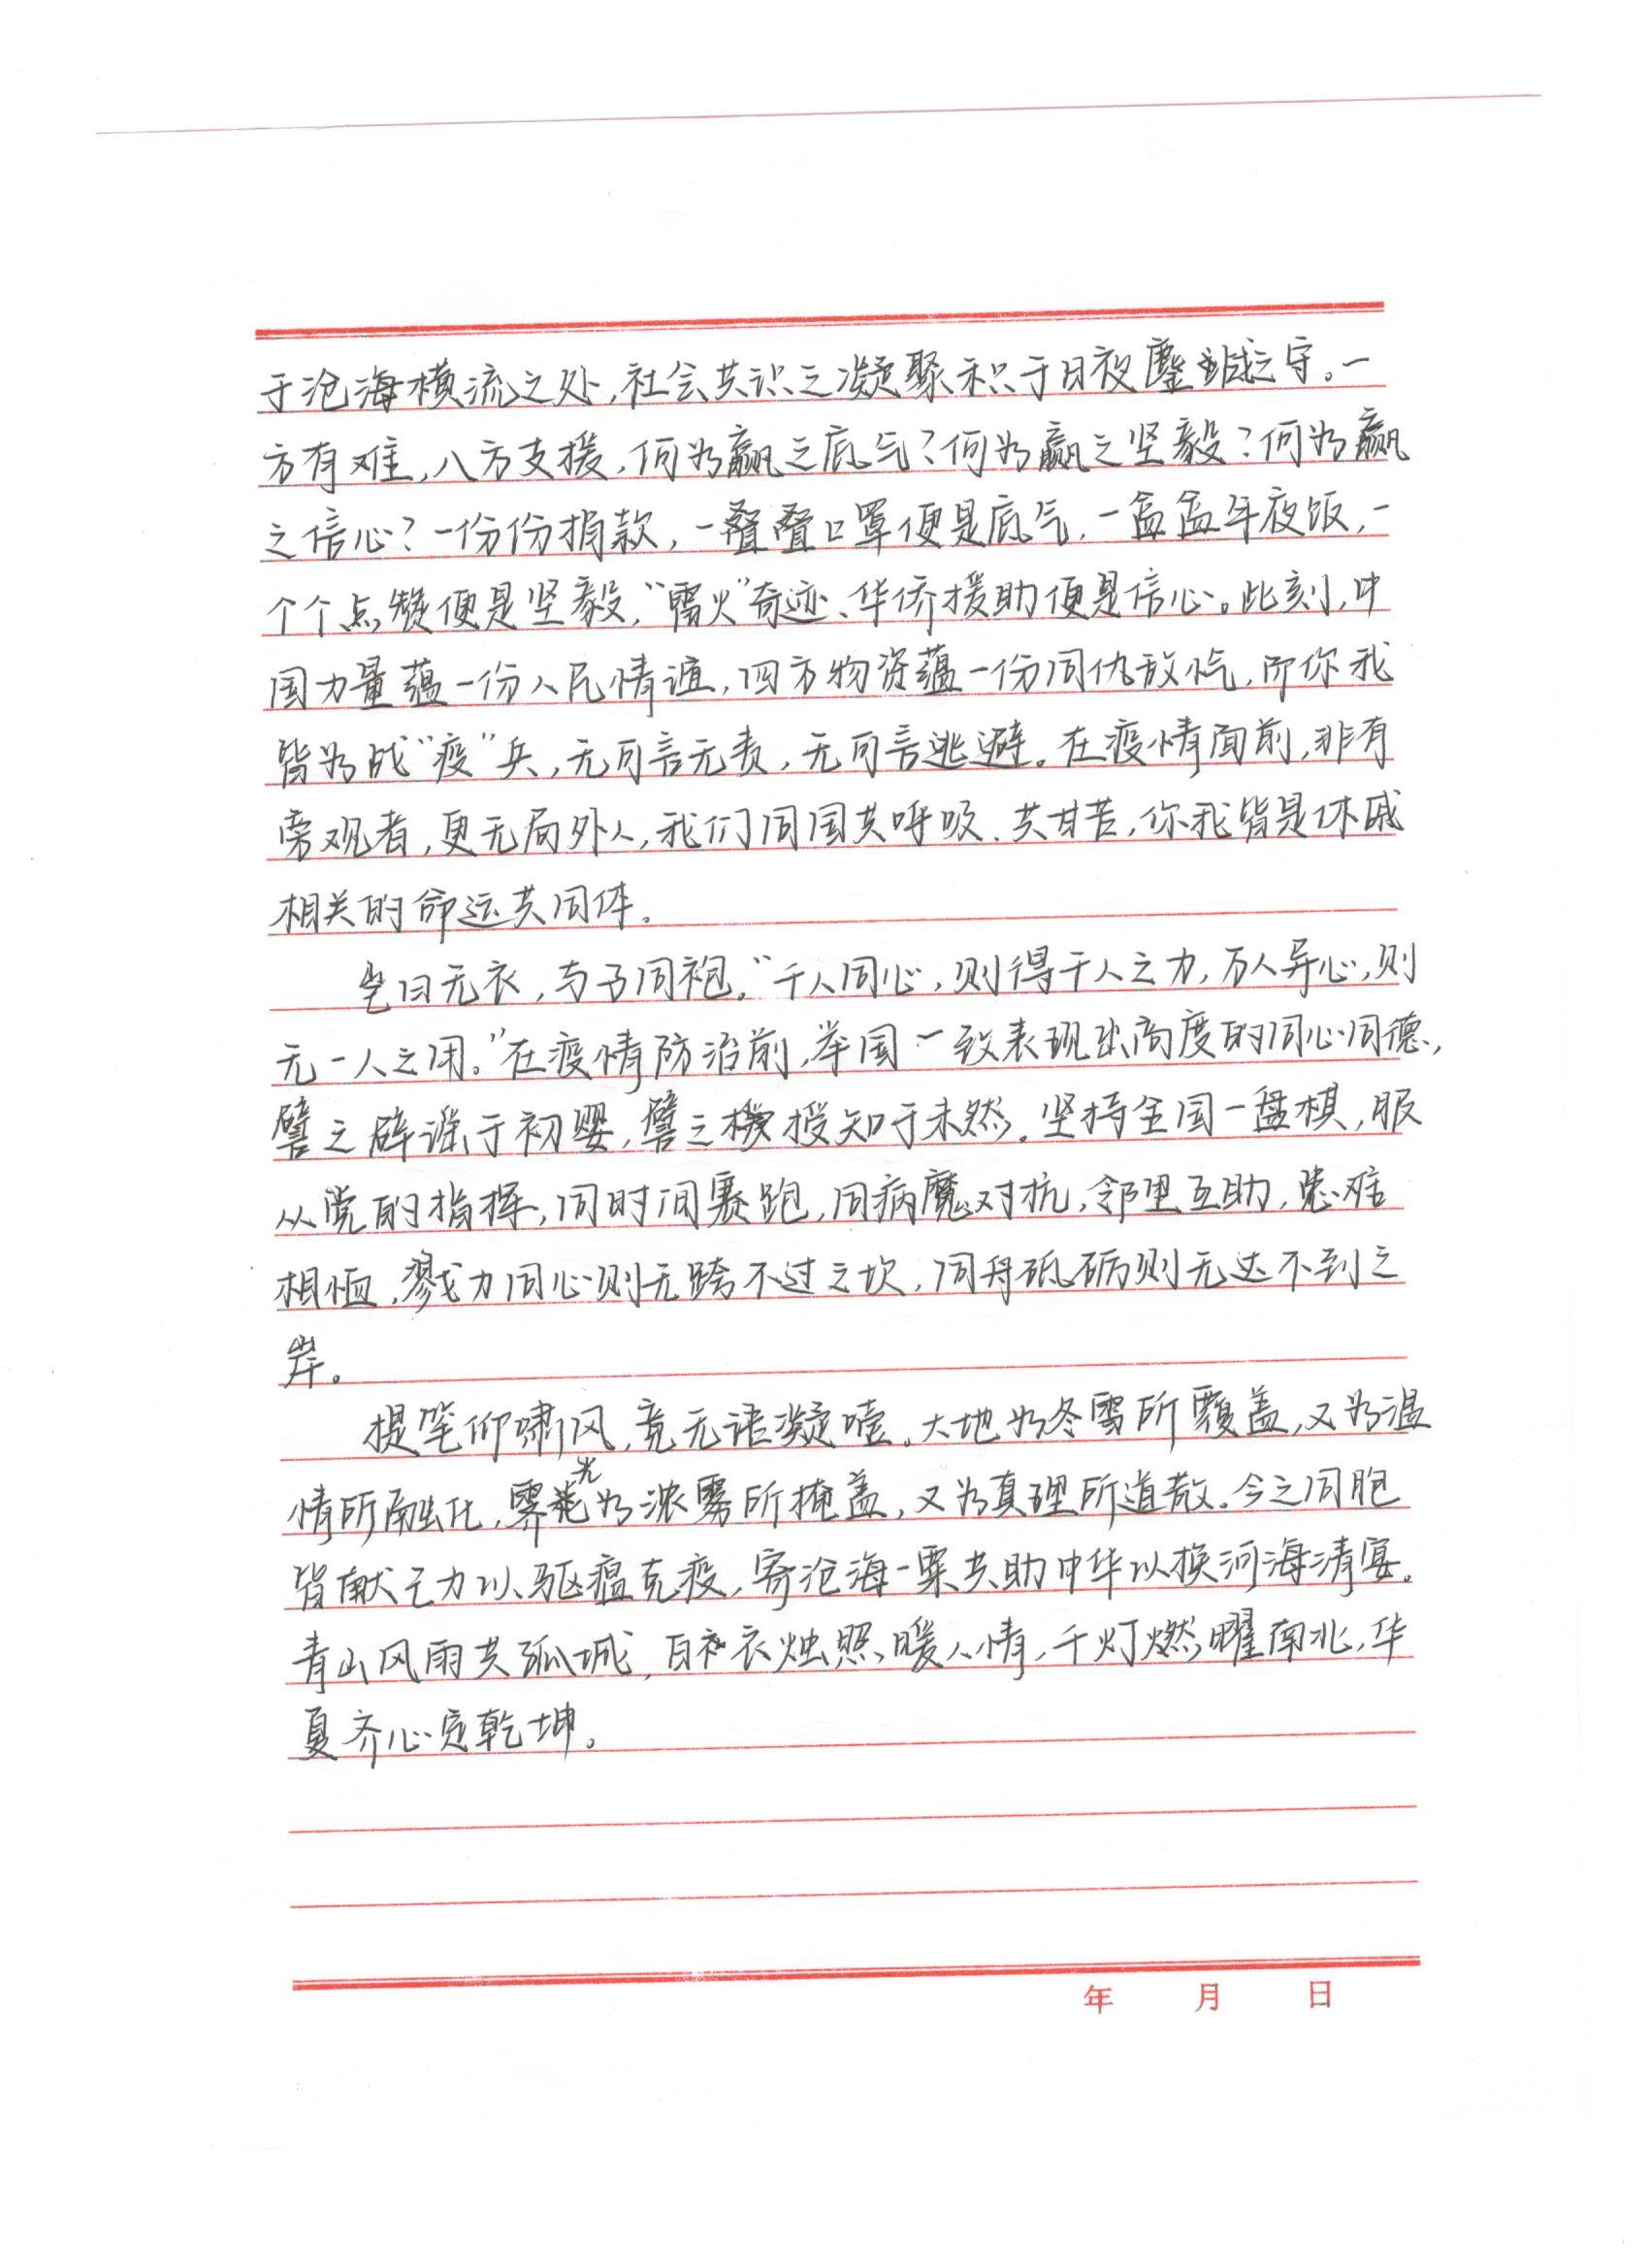 于沧海横流之处,社会共识之凝聚积于日夜鏖战之守。一
方有难,八方支援,何为赢之底气?何为赢之坚毅?何为赢
之信心?一份份捐款,一叠叠口罩便是底气,一盒盒年夜饭,一
个个点赞便是坚毅,“雷火”奇迹、华侨援助便是信心。此刻,中
国力量蕴一份人民情谊,四方物资蕴一份同仇敌忾,而你我
皆为战“疫”兵,无可言无责,无可言逃避。在疫情面前,非有
旁观者,更无局外人,我们同国共呼吸、共甘苦,你我皆是休戚
相关的命运共同体。
岂曰无衣,与子同袍。“千人同心,则得千人之力,万人异心,则
无一人之用。”在疫情防治前,举国一致表现出高度的同心同德,
譬之辟谣于初婴,譬之授知于未然。坚持全国一盘棋,服
从党的指挥,同时间赛跑,同病魔对抗,邻里互助,患难
相恤,戮力同心则无跨不过之坎,同舟砥砺则无达不到之
岸。
提笔仰啸风,竟无语凝噎。大地为冬雪所覆盖,又为温
情所融化,霁光为浓雾所掩盖,又为真理所遣散。今之同胞
皆献己力以驱瘟克疫,寄沧海一粟共助中华以换河海清宴。
青山风雨共孤城,白衣烛照暖人情,千灯燃曜南北,华
夏齐心定乾坤。
年 月 日